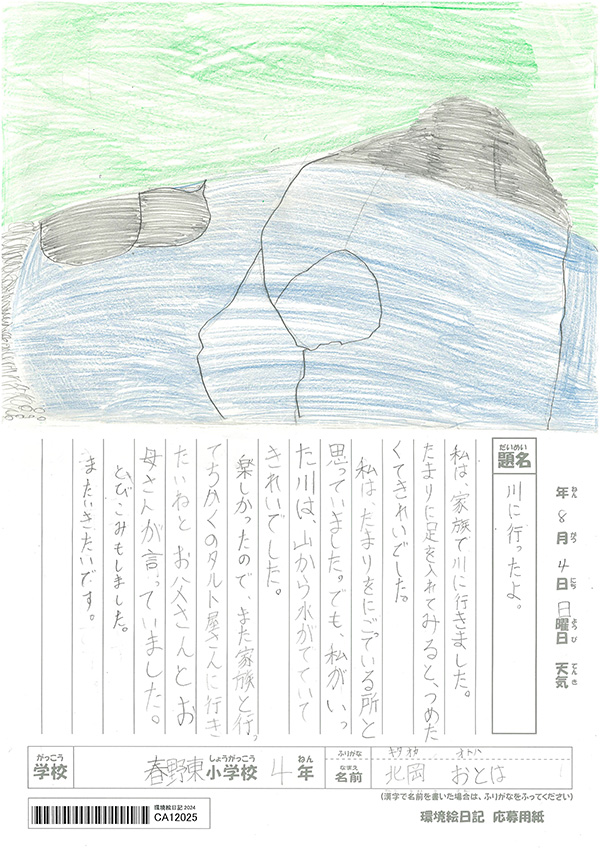 年 8月 4日 日曜日 天気
ねん がつ にち ようび てんき
だいめい
題名
川に行ったよ。
私は、家族で川に行きました。
たまりに足を入れてみると、つめた
くてきれいでした。
私は、たまりをにごでいる所と
思っていました。でも、私がいっ
た川は、山から水がでていて
きれいでした。
楽しかったので、また家族と行っ
てちかくのタルト屋さんに行き
たいねと お父さんとお
母さんが言っていました。
とびこみもしました。
またいきたいです。
がっこう
学校
春野東小学校 4年
しょうがっこう ねん
ふりがな キタオカ オトハ
なまえ
名前 北岡 おとは
(漢字で名前を書いた場合は、ふりがなをふってください)
環境絵日記2024
CA12025
環境絵日記 応募用紙